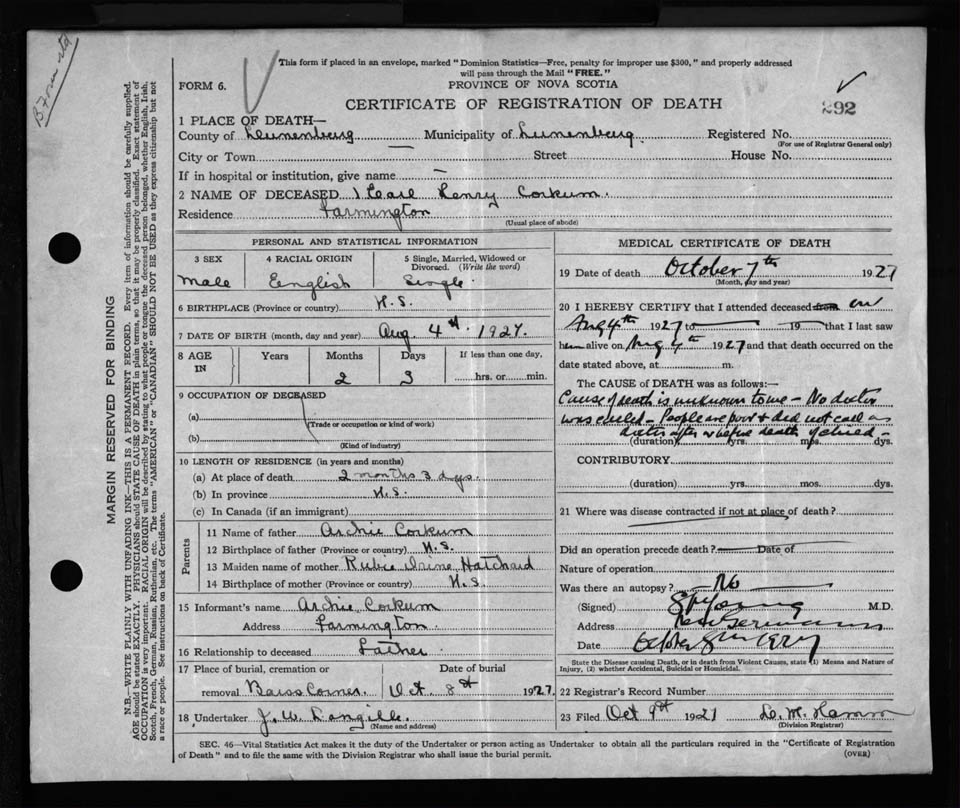 This form if placed in an envelope, marked "Dominion Statistics—Free, penalty for improper use $300," and properly addressed
will pass through the Mail "FREE."
FORM 6.
PROVINCE OF NOVA SCOTIA
CERTIFICATE OF REGISTRATION OF DEATH
292
1 PLACE OF DEATH—
County of Lunenburg Municipality of Lunenburg Registered No.
(For use of Registrar General only)
City or Town Street House No.
If in hospital or institution, give name —
2 NAME OF DECEASED Pearl Henry Corkum
Residence Farmington
(Usual place of abode)
PERSONAL AND STATISTICAL INFORMATION
3 SEX 4 RACIAL ORIGIN 5 Single, Married, Widowed or Divorced. (Write the word)
Male English Single
6 BIRTHPLACE (Province or country) N.S.
7 DATE OF BIRTH (month, day and year) Aug 4th 1927.
8 AGE IN Years Months Days If less than one day,
2 3 hrs. or min.
9 OCCUPATION OF DECEASED
(a)
(Trade or occupation or kind of work)
(b)
(Kind of industry)
10 LENGTH OF RESIDENCE (in years and months)
(a) At place of death 2 months 3 dys.
(b) In province N.S.
(c) In Canada (if an immigrant)
Parents
11 Name of father Archie Corkum
12 Birthplace of father (Province or country) N.S.
13 Maiden name of mother Rubie Irine Hatchard
14 Birthplace of mother (Province or country) N.S.
15 Informant's name Archie Corkum
Address Farmington.
16 Relationship to deceased Father
17 Place of burial, cremation or Date of burial
removal Barss Corner Oct 8st 1927.
18 Undertaker J. W. Langille.
(Name and address)
MEDICAL CERTIFICATE OF DEATH
19 Date of death October 7th 1927
(Month, day and year)
20 I HEREBY CERTIFY that I attended deceased from on
Aug 4th 1927 to 19 that I last saw
him alive on Aug 4th 1927 and that death occurred on the
date stated above, at m.
The CAUSE of DEATH was as follows:—
Cause of death is unknown to me – No doctor
was called – People are poor & did not call a
doctor after or before death of child –
(duration) yrs. mos. dys.
CONTRIBUTORY
(duration) yrs. mos. dys.
21 Where was disease contracted if not at place of death?
Did an operation precede death? Date of
Nature of operation
Was there an autopsy? No
(Signed) M.D.
Address New Germany
Date October
State the Disease causing Death, or in death from Violent Causes, state (1) Means and Nature of
Injury, (2) whether Accidental, Suicidal or Homicidal.
22 Registrar's Record Number
23 Filed Oct 9th 1927
(Division Registrar)
SEC. 46—Vital Statistics Act makes it the duty of the Undertaker or person acting as Undertaker to obtain all the particulars required in the "Certificate of Registration
of Death" and to file the same with the Division Registrar who shall issue the burial permit. (OVER)
MARGIN RESERVED FOR BINDING
N.B.—WRITE PLAINLY WITH UNFADING INK—THIS IS A PERMANENT RECORD. Every item of information should be carefully supplied.
AGE should be stated EXACTLY. PHYSICIANS should STATE CAUSE OF DEATH in plain terms, so that it may be properly classified. Exact statement of
OCCUPATION is very important. RACIAL ORIGIN will be described by stating to what people or tongue the deceased person belonged, whether English, Irish,
Scotch, French, German, Russian, Ruthenian, etc. The terms "AMERICAN" or "CANADIAN" SHOULD NOT BE USED as they express citizenship but not
a race or people. See instructions on back of Certificate.